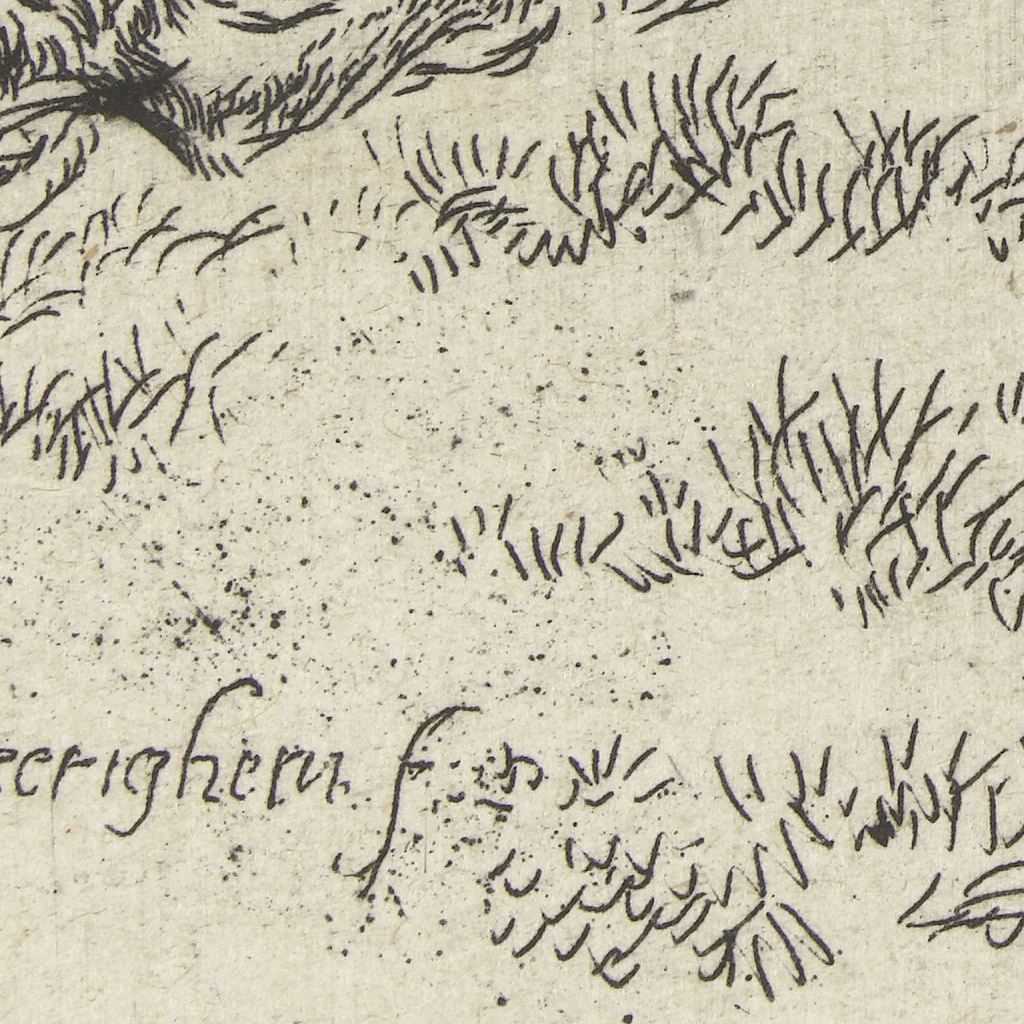 eerighem f